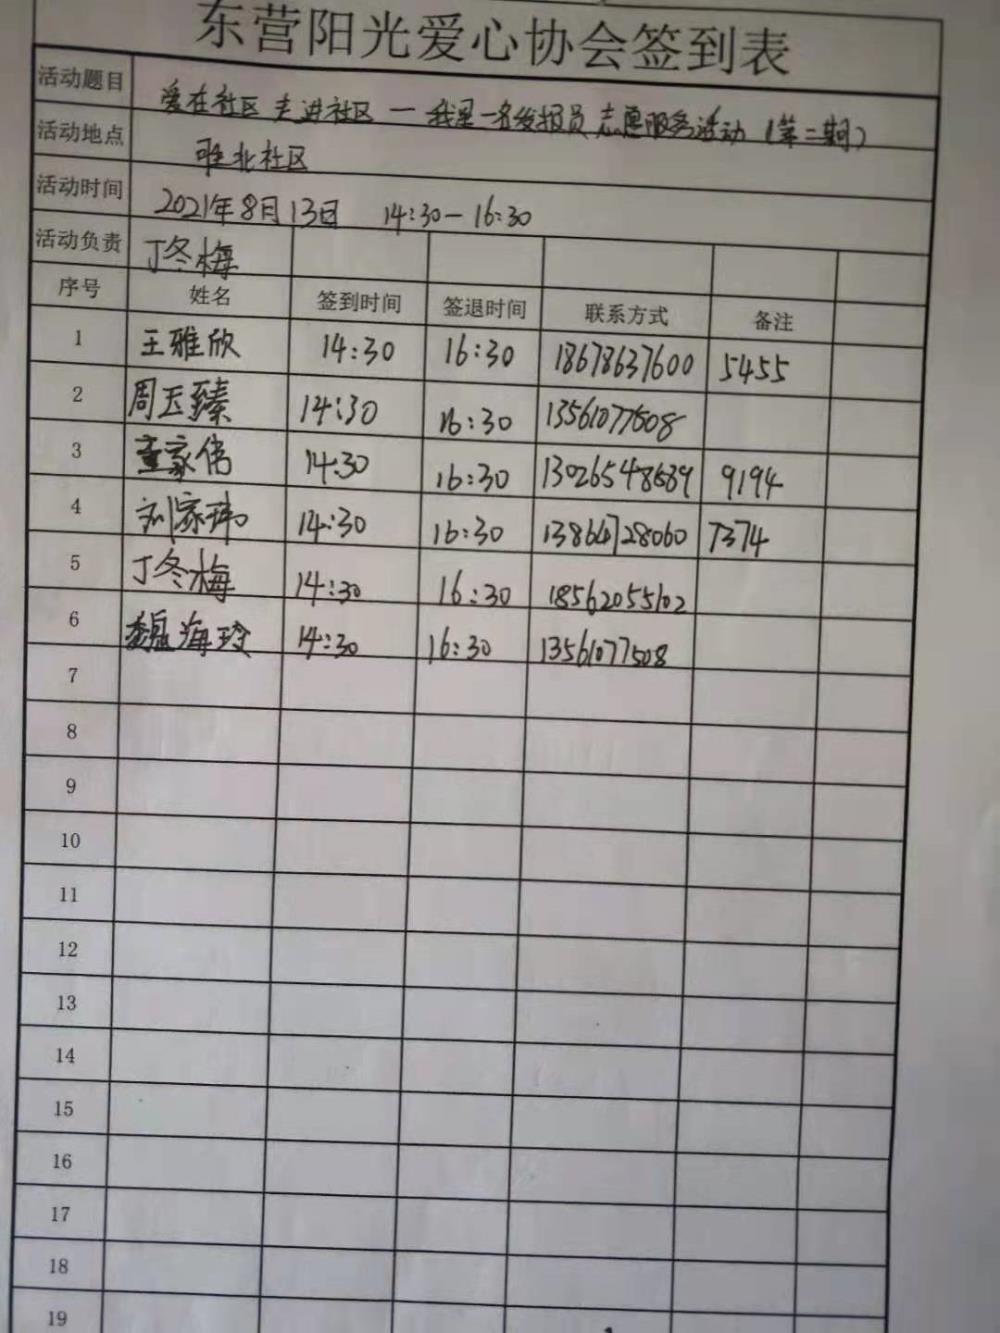 东营阳光爱心协会签到表
活动题目 爱在社区 走进社区 — 我是一名发报员 志愿服务活动 (第二期)
活动地点 北社区
活动时间 2021年8月13日 14:30—16:30
活动负责 丁冬梅
序号 姓名 签到时间 签退时间 联系方式 备注
1 王雅欣 14:30 16:30 18678637600 5455
2 周玉臻 14:30 16:30 13561077508
3 董家伟 14:30 16:30 9194
4 刘家玮 14:30 16:30 13864728060 7374
5 丁冬梅 14:30 16:30 18562055102
6 魏海玲 14:30 16:30 13561077508
7
8
9
10
11
12
13
14
15
16
17
18
19